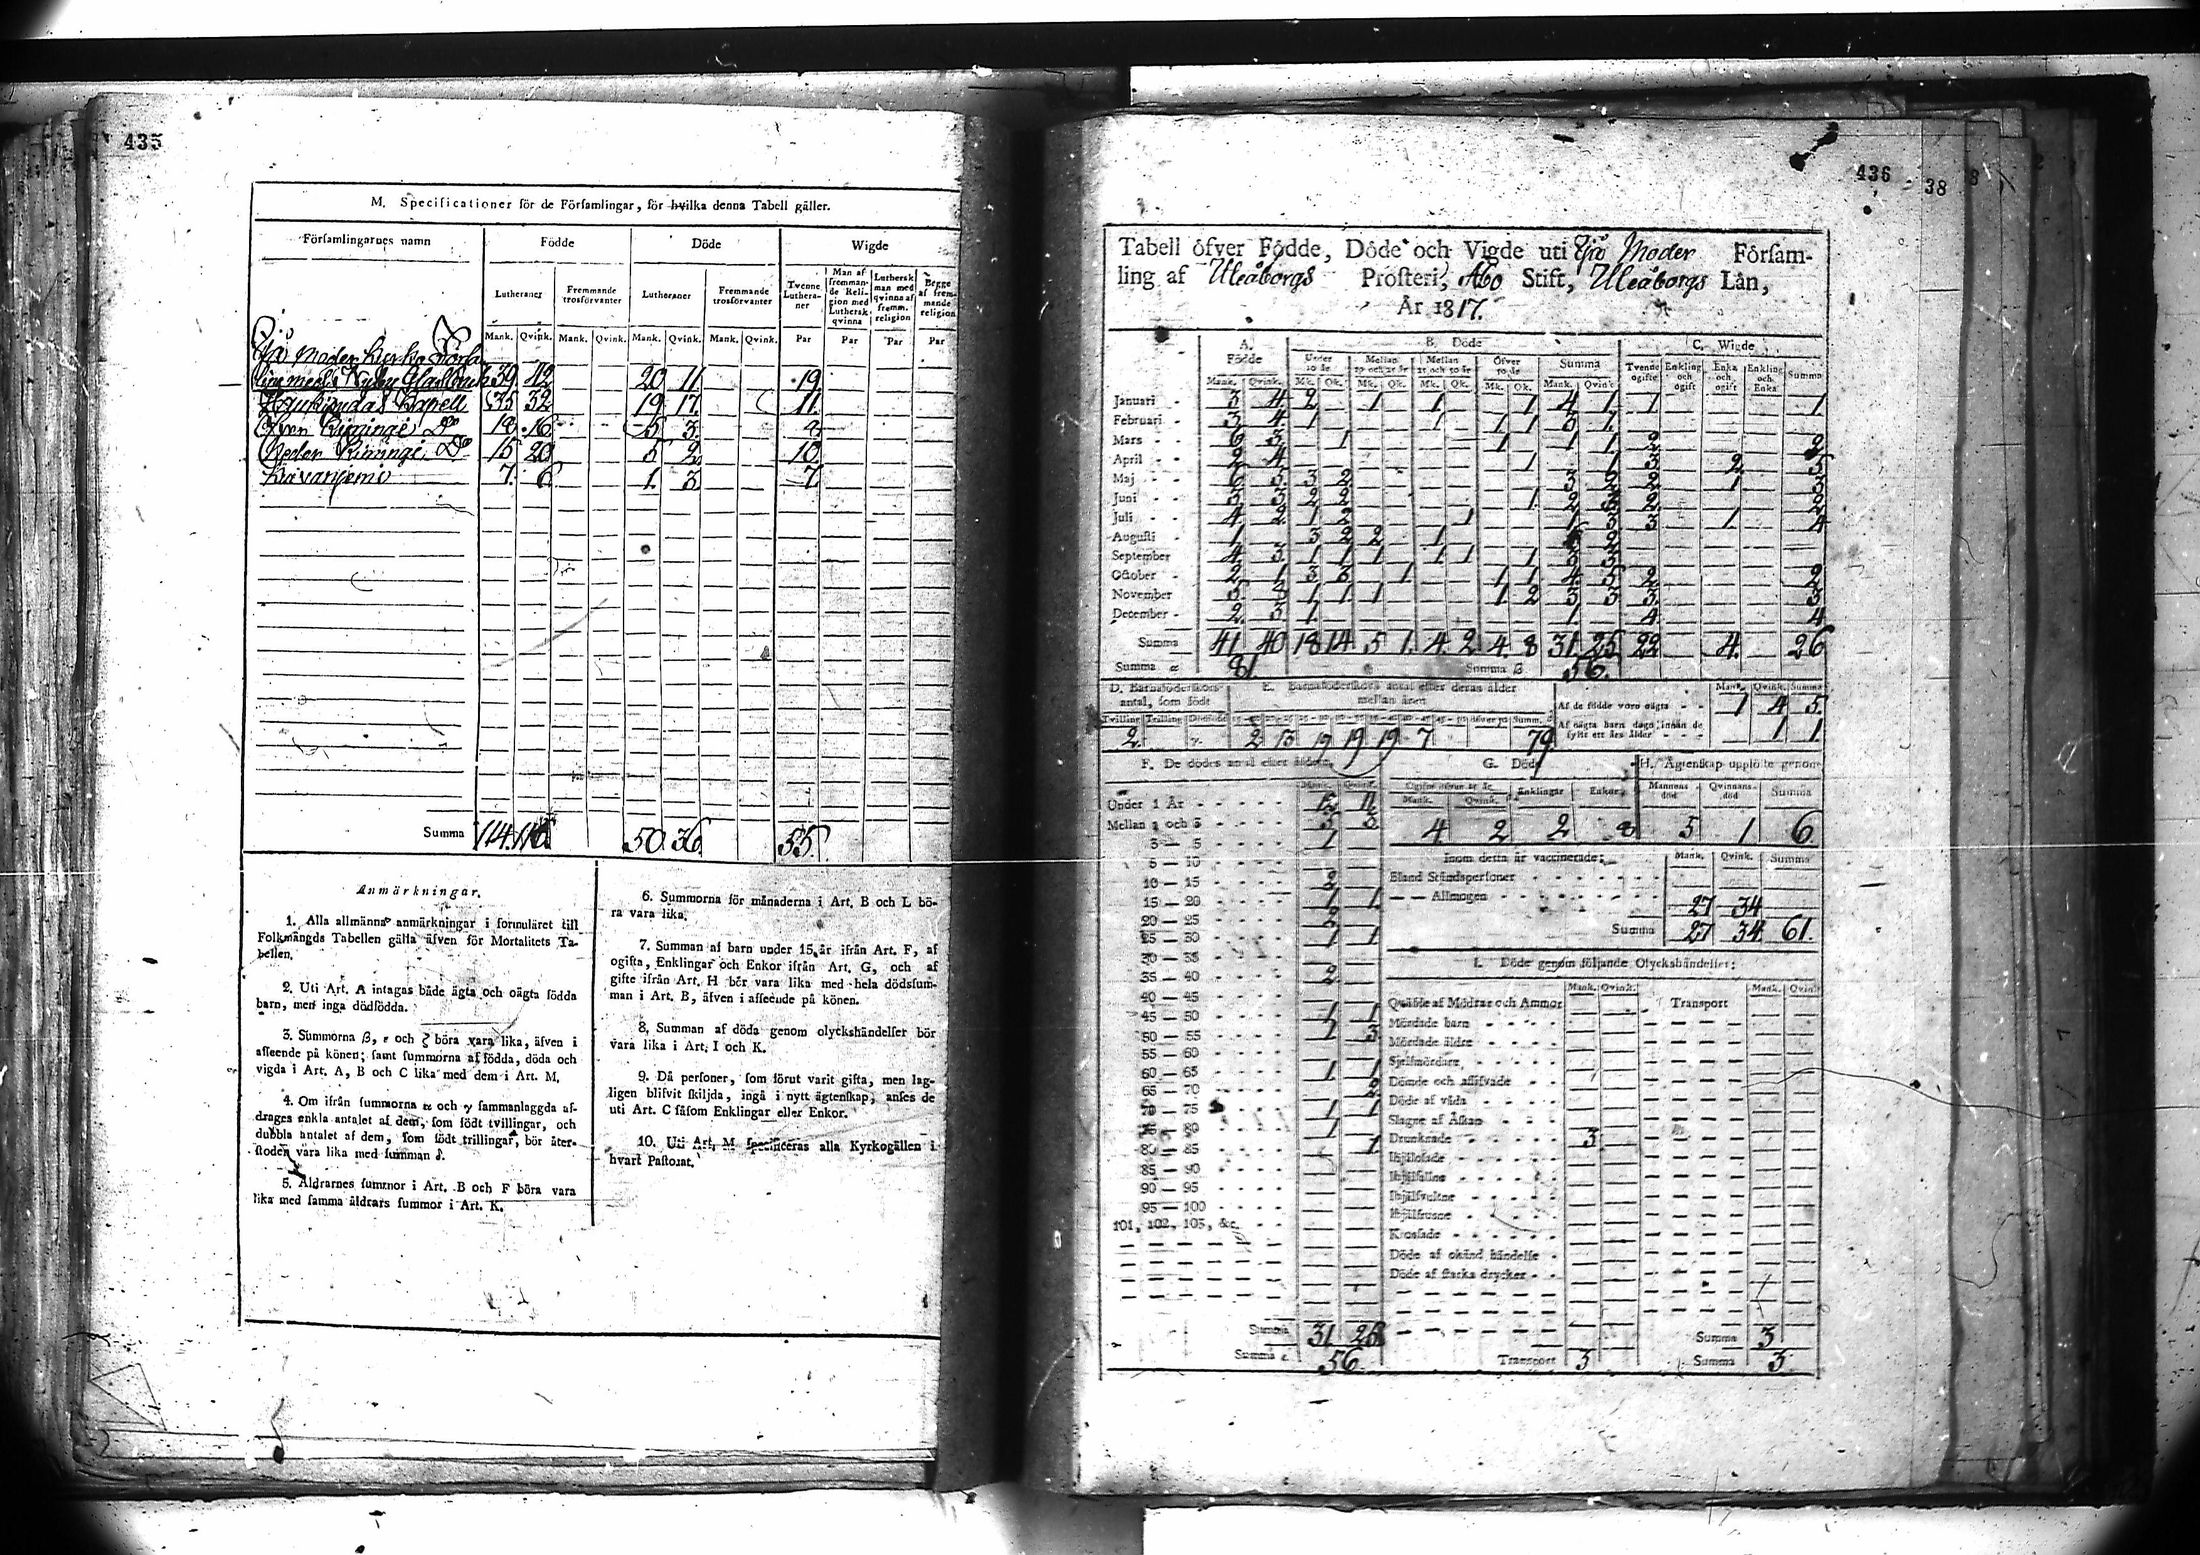 435
M. Specificationer för de Församlingar, för hvilka denna Tabell gäller.
Församlingarnes namn Födde Döde Wigde
Lutheraner Fremmande trosförvanter Lutheraner Fremmande trosförvanter Tvenne Lutheraner Man af fremmande Religion med Luthersk qvinna Luthersk man med qvinna af fremm. religion Begge af fremmande religion
Mank. Qvink. Mank. Qvink. Mank. Qvink. Mank. Qvink. Par Par Par Par
Ijo Moder Kyrko Förſam
39 42 20 11 19
Haukipudas Kapell 35 32 19 17 11
Öfver Kiiminge Do 18 16 5 3 8
Neder Kiiminge Do 15 20 5 2 10
Kuivaniemi 7 6 1 3 7
Summa 114 116 50 36 55
Anmärkningar.
1. Alla allmänna anmärkningar i formuläret till
Folkmängds Tabellen gälla äfven för Mortalitets Ta-
bellen.
2. Uti Art. A intagas både ägta och oägta födda
barn, men inga dödfödda.
3. Summorna β, ε och ζ böra vara lika, äfven i
afſeende på könen; ſamt ſummorna af födda, döda och
vigda i Art. A, B och C lika med dem i Art. M.
4. Om ifrån ſummorna α och γ ſammanlaggda af-
drages enkla antalet af dem, ſom födt tvillingar, och
dubbla antalet af dem, ſom födt trillingar, bör åter-
ſtoden vara lika med ſumman δ.
5. Åldrarnes ſummor i Art. B och F böra vara
lika med ſamma åldrars ſummor i Art. K.
6. Summorna för månaderna i Art. B och L bö-
ra vara lika.
7. Summan af barn under 15 år ifrån Art. F, af
ogifta, Enklingar och Enkor ifrån Art. G, och af
gifte ifrån Art. H bör vara lika med hela dödsſum-
man i Art. B, äfven i afſeende på könen.
8. Summan af döda genom olyckshändelſer bör
vara lika i Art. I och K.
9. Då perſoner, ſom förut varit gifta, men lag-
ligen blifvit ſkiljda, ingå i nytt ägtenſkap, anſes de
uti Art. C ſåſom Enklingar eller Enkor.
10. Uti Art. M ſpecificeras alla Kyrkogällen i
hvart Paſtorat.
436
38
Tabell öfver Födde, Döde och Vigde uti Ijo Moder Förſam-
ling af Uleåborgs Proſteri, Åbo Stift, Uleåborgs Län,
År 1817.
A. Födde B. Döde C. Wigde
Under 10 år Mellan 10 och 25 år Mellan 25 och 50 år Öfver 50 år Summa Tvende ogifte Enkling och ogift Enka och ogift Enkling och Enka Summa
Mank. Qvink. Mk. Qk. Mk. Qk. Mk. Qk. Mk. Qk. Mank. Qvink.
Januari 3 4 2 1 1 1 4 1 1 1
Februari 3 4 1 1 1 1 3 1
Mars 6 3 1 1 1 1 2 2
April 2 4 1 1 3 2 5
Maj 6 5 3 2 3 2 2 1 3
Juni 3 3 2 2 1 2 3 2 2
Juli 4 2 1 2 1 1 3 3 1 4
Auguſti 1 3 2 2 1 6 2
September 4 3 1 1 1 1 1 1 3 3
October 2 1 3 3 1 1 1 4 5 2 2
November 5 5 1 1 1 1 2 3 3 3 3
December 2 3 1 1 4 4
Summa 41 40 18 14 5 1 4 2 4 8 31 25 22 4 26
Summa α 81 Summa β 56
D. Barnaföderſkors antal, ſom födt E. Barnaföderſkors antal efter deras ålder mellan åren
Mank. Qvink. Summa
Af de födde voro oägta 1 4 5
Tvilling Trilling Dödfödde
Af oägta barn dogo innan de fyllt ett års ålder 1 1
2 2 13 19 19 19 7 79
F. De dödes antal efter åldern G. Döde H. Ägtenſkap upplöſte genom
Mank. Qvink. Enklingar Enkor Mannens död Qvinnans död Summa
Under 1 År 12 11
Mellan 1 och 3 5 3
3 — 5 1
4 2 2 8 5 1 6
5 — 10
10 — 15 2
15 — 20 1 1
20 — 25 2
25 — 30 1 1
30 — 35
35 — 40 2
40 — 45
45 — 50 1 1
50 — 55 1 3
55 — 60
60 — 65 1 1
65 — 70 2
70 — 75 1 1
75 — 80 1
80 — 85 1
85 — 90
90 — 95
95 — 100
101, 102, 103, &c.
Summa 31 25
Summa ε 56
Inom detta år vaccinerade: Mank. Qvink. Summa
Bland Ståndsperſoner
— — Allmogen 27 34
Summa 27 34 61
I. Döde genom följande Olyckshändelſer:
Mank. Qvink. Mank. Qvink.
Qväfde af Mödrar och Ammor Transport
Mördade barn
Mördade äldre
Sjelfmördare
Dömde och aflifvade
Döde af våda
Slagne af Åſkan
Drunknade 3
Ihjälfallne
Ihjälfruſne
Döde af okänd händelſe
Döde af ſtarka drycker
Summa 3
Transport 3 Summa 3